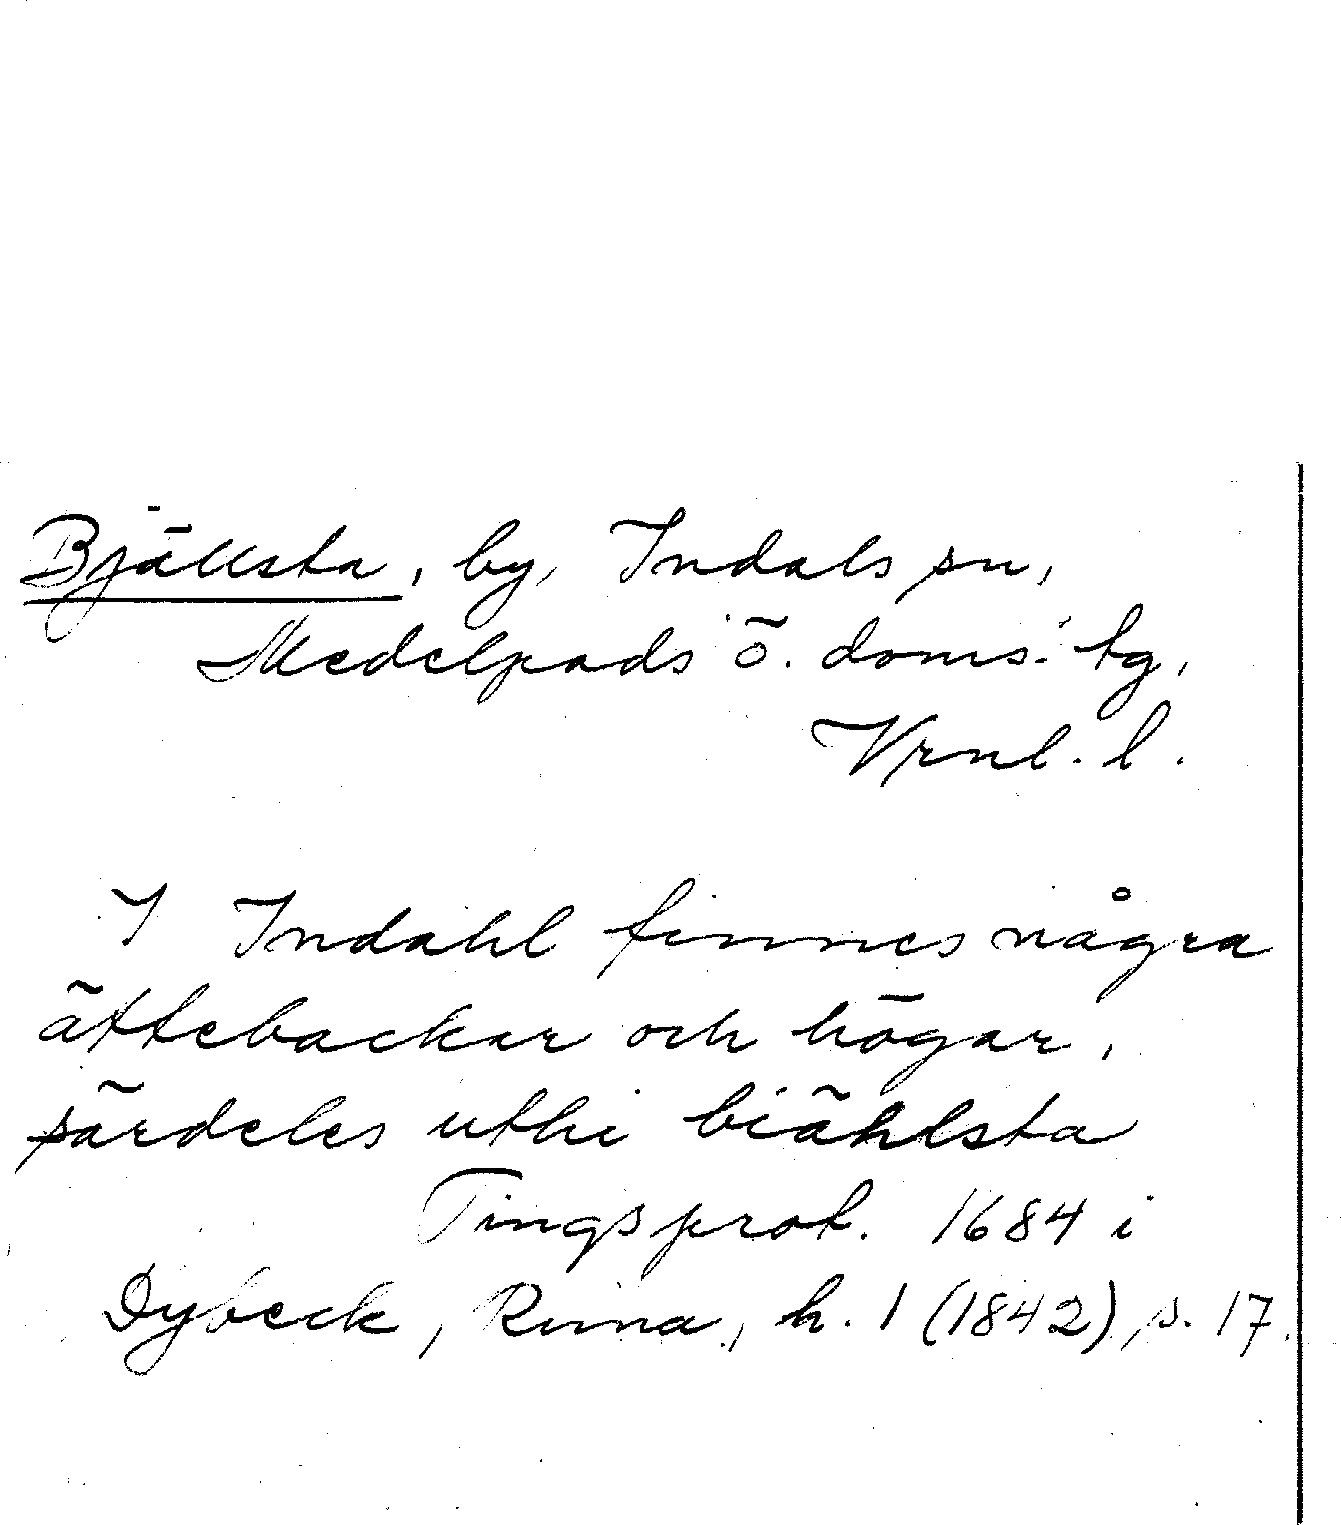 Bjällsta, by, Indals sn,
Medelpads ö. doms. tg,
Vrnl. l.
I Indahl finnes några
ättebackar och högar,
särdeles uthi biählsta
Tingsprot. 1684 i
Dybeck, Runa, h. 1 (1842), s. 17.